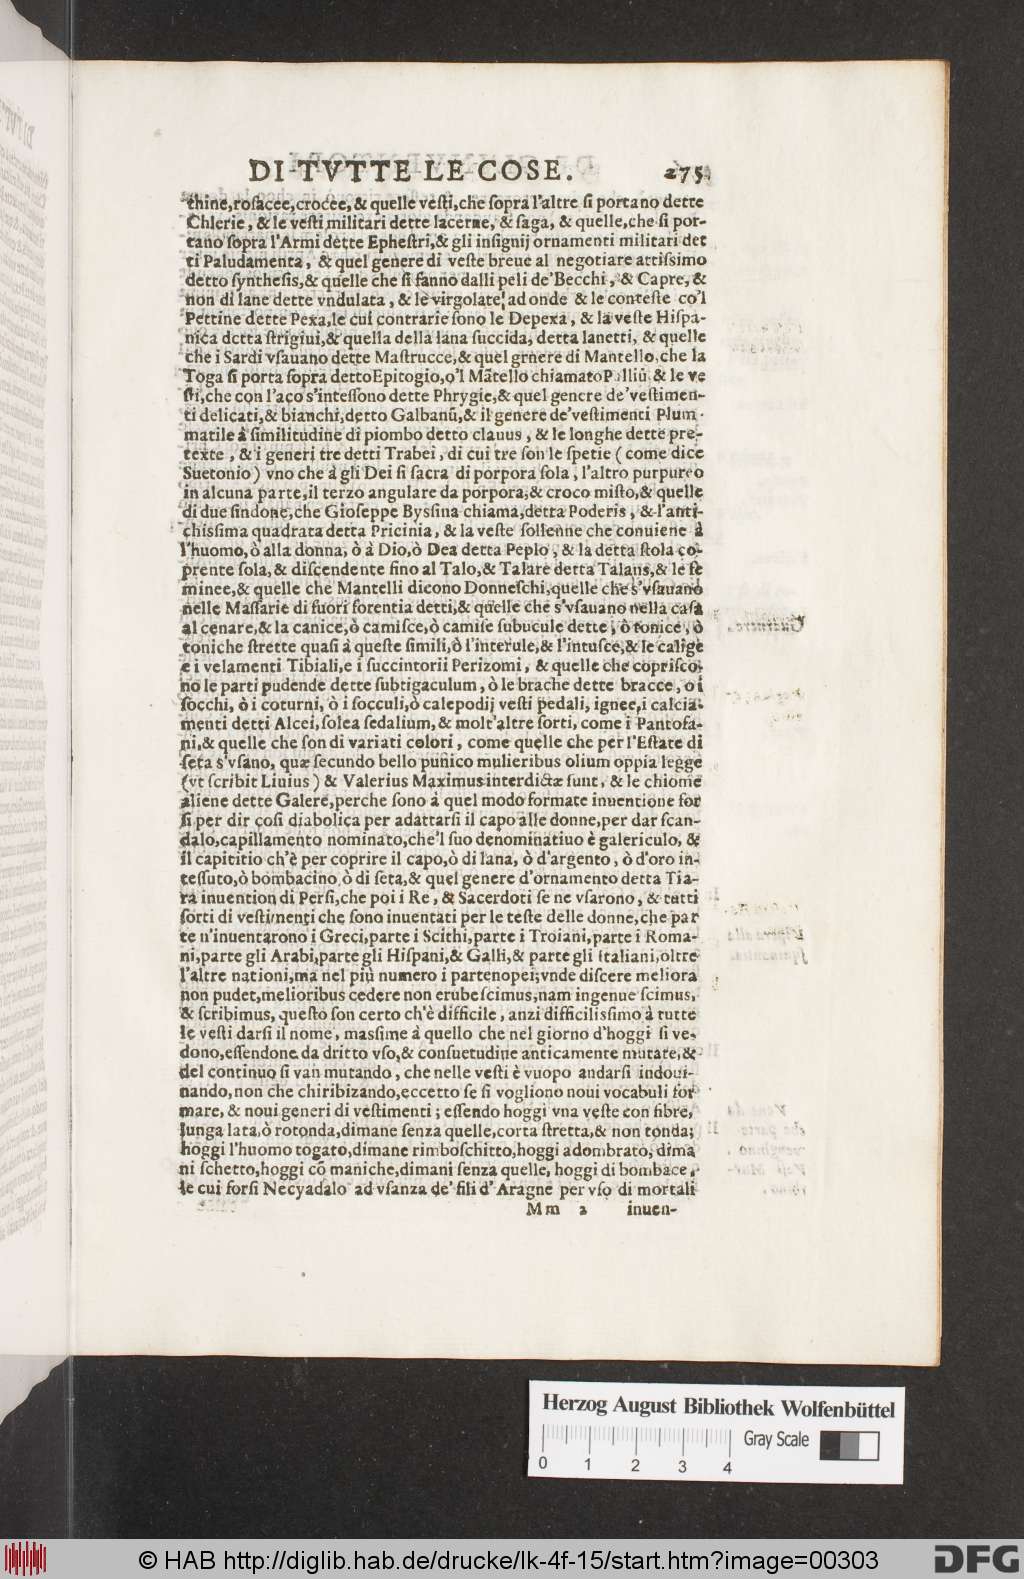 DI TVTTE LE COSE. 275
thine,rosacee,crocee,& quelle vesti,che sopra l'altre si portano dette
Chlerie, & le vesti militari dette lacerne, & saga, & quelle,che si por-
tano sopra l'Armi dette Ephestri,& gli insignij ornamenti militari det
ti Paludamenta, & quel genere di veste breue al negotiare attissimo
detto synthesis,& quelle che si fanno dalli peli de'Becchi, & Capre,&
non di lane dette vndulata, & le virgolate, ad onde & le conteste co'l
Pettine dette Pexa,le cui contrarie sono le Depexa, & la veste Hispa-
nica detta strigiui,& quella della lana succida, detta lanetti, & quelle
che i Sardi vsauano dette Mastrucce,& quel genere di Mantello,che la
Toga si porta sopra detto Epitogio,o'l Mãtello chiamato Palliũ & le ve
sti,che con l'aco s'intessono dette Phrygie,& quel genere de'vestimen-
ti delicati,& bianchi,detto Galbanũ,& il genere de'vestimenti Plum-
matile à similitudine di piombo detto clauus, & le longhe dette pre-
texte, & i generi tre detti Trabei, di cui tre son le spetie (come dice
Suetonio) vno che à gli Dei si sacra di porpora sola, l'altro purpureo
in alcuna parte,il terzo angulare da porpora,& croco misto,& quelle
di due sindone,che Gioseppe Byssina chiama,detta Poderis, & l'anti-
chissima quadrata detta Pricinia, & la veste sollenne che conuiene à
l'huomo,ò alla donna, ò à Dio,ò Dea detta Peplo, & la detta stola co-
prente sola,& discendente fino al Talo,& Talare detta Talaus,& le fe
minee,& quelle che Mantelli dicono Donneschi,quelle che s'vsauano
nelle Massarie di fuori forentia detti,& quelle che s'vsauano nella casa
al cenare,& la canice,ò camisce,ò camise subucule dette, ò tonice, ò
toniche strette quasi à queste simili,ò l'interule,& l'intusce,& le calige
e i velamenti Tibiali,e i succintorii Perizomi, & quelle che coprisco-
no le parti pudende dette subtigaculum, ò le brache dette bracce, o i
socchi, ò i coturni, ò i socculi,ò calepodij vesti pedali, ignee,i calcia-
menti detti Alcei,solea sedalium,& molt'altre sorti, come i Pantofa-
ni,& quelle che son di variati colori, come quelle che per l'Estate di
seta s'vsano, quæ secundo bello punico mulieribus olium oppia legge
(vt scribit Liuius) & Valerius Maximus interdictæ sunt, & le chiome
aliene dette Galere,perche sono à quel modo formate inuentione for
si per dir cosi diabolica per adattarsi il capo alle donne,per dar scan-
dalo,capillamento nominato,che'l suo denominatiuo è galericulo, &
il capititio ch'è per coprire il capo,ò di lana, ò d'argento, ò d'oro in-
tessuto,ò bombacino,ò di seta,& quel genere d'ornamento detta Tia-
ra inuention di Persi,che poi i Re, & Sacerdoti se ne vsarono, & tutti
sorti di vestimenti che sono inuentati per le teste delle donne,che par
te n'inuentarono i Greci,parte i Scithi,parte i Troiani,parte i Roma-
ni,parte gli Arabi,parte gli Hispani,& Galli,& parte gli Italiani,oltre
l'altre nationi,ma nel più numero i partenopei;vnde discere meliora
non pudet,melioribus cedere non erubescimus,nam ingenue scimus,
& scribimus, questo son certo ch'è difficile, anzi difficilissimo à tutte
le vesti darsi il nome, massime à quello che nel giorno d'hoggi si ve-
dono,essendone da dritto vso,& consuetudine anticamente mutate,&
del continuo si van mutando, che nelle vesti è vuopo andarsi indoui-
nando,non che chiribizando,eccetto se si vogliono noui vocabuli for
mare, & noui generi di vestimenti; essendo hoggi vna veste con fibre,
lunga lata,ò rotonda,dimane senza quelle,corta stretta,& non tonda;
hoggi l'huomo togato,dimane rimboschitto,hoggi adombrato, dima
ni schetto,hoggi cõ maniche,dimani senza quelle, hoggi di bombace,
le cui forsi Necyadalo ad vsanza de' fili d'Aragne per vso di mortali
Mm 2 inuen-
Herzog August Bibliothek Wolfenbüttel
Gray Scale
0 1 2 3 4
© HAB http://diglib.hab.de/drucke/lk-4f-15/start.htm?image=00303
DFG